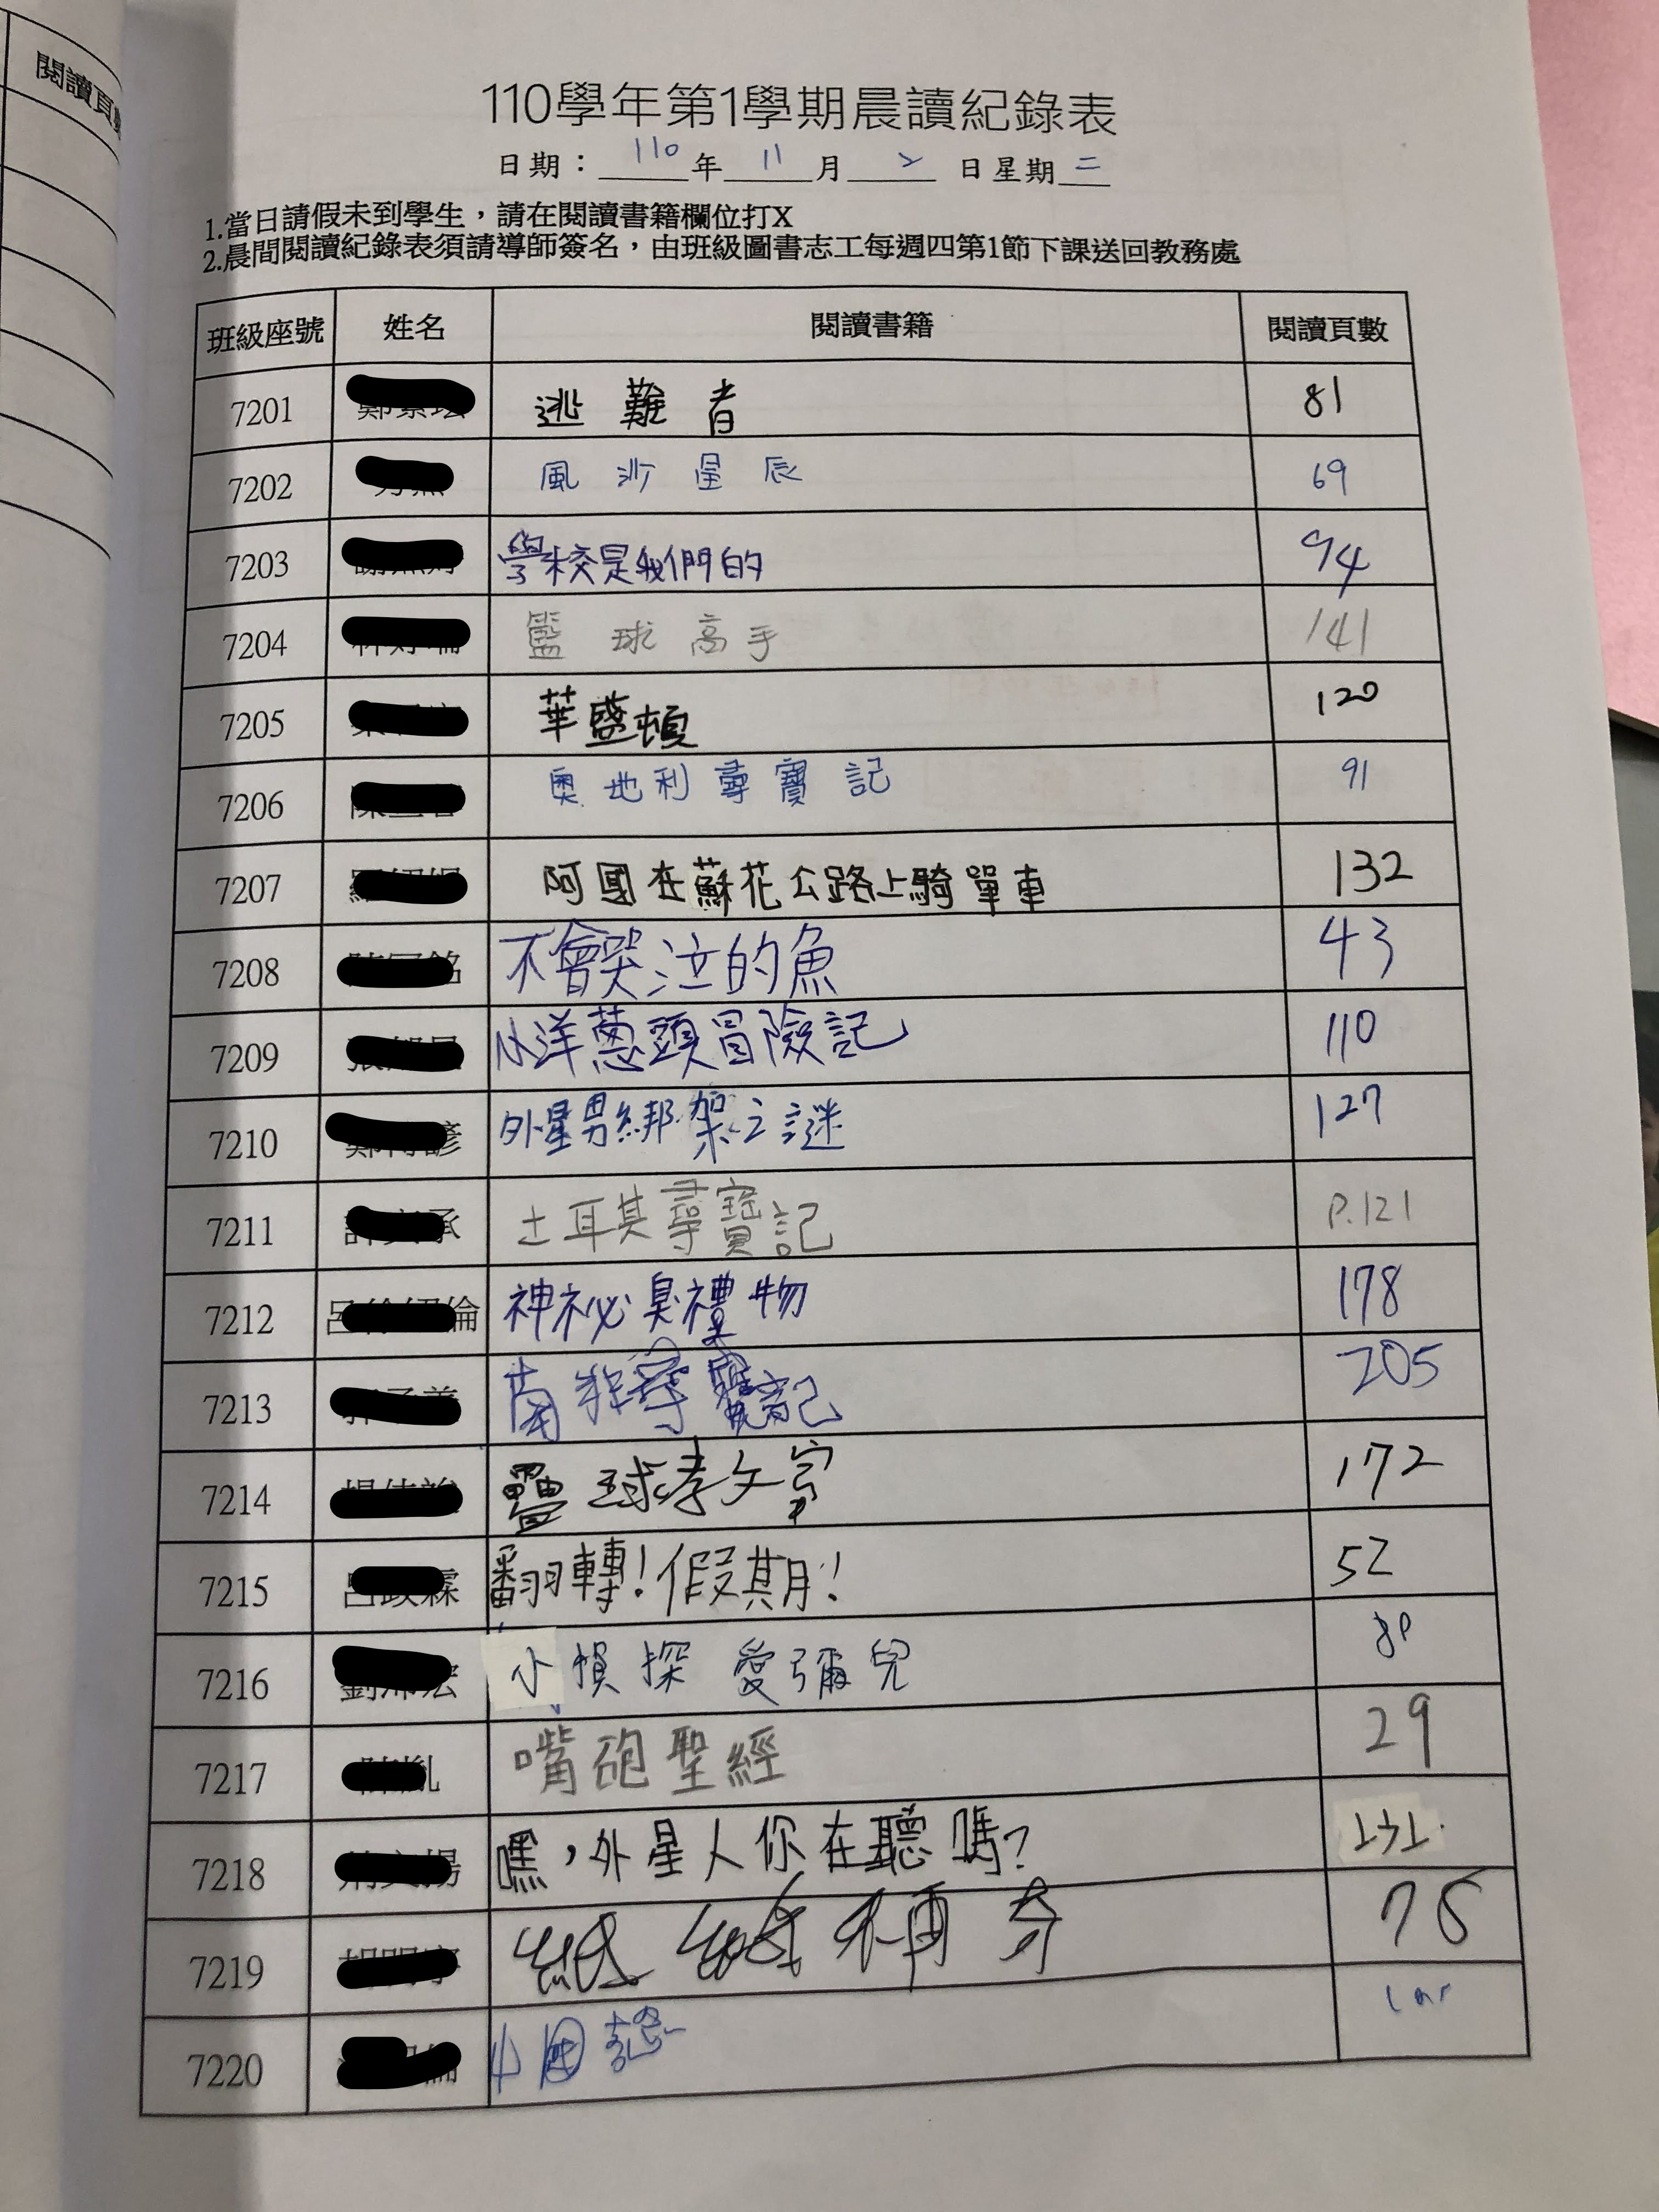 閱讀頁數
110學年第1學期晨讀紀錄表
日期：110年11月2日星期二
1.當日請假未到學生，請在閱讀書籍欄位打X
2.晨間閱讀紀錄表須請導師簽名，由班級圖書志工每週四第1節下課送回教務處
班級座號 姓名 閱讀書籍 閱讀頁數
7201 逃難者 81
7202 風沙星辰 69
7203 學校是我們的 94
7204 籃球高手 141
7205 華盛頓 120
7206 奧地利尋寶記 91
7207 阿國在蘇花公路上騎單車 132
7208 不會哭泣的魚 43
7209 小洋蔥頭冒險記 110
7210 外星男綁架之謎 127
7211 土耳其尋寶記 P.121
7212 神祕臭禮物 178
7213 南非尋寶記 205
7214 壘球孝文家 172
7215 翻轉！假期！ 52
7216 小偵探愛彌兒 80
7217 嘴砲聖經 29
7218 嘿，外星人你在聽嗎？
7219 75
7220